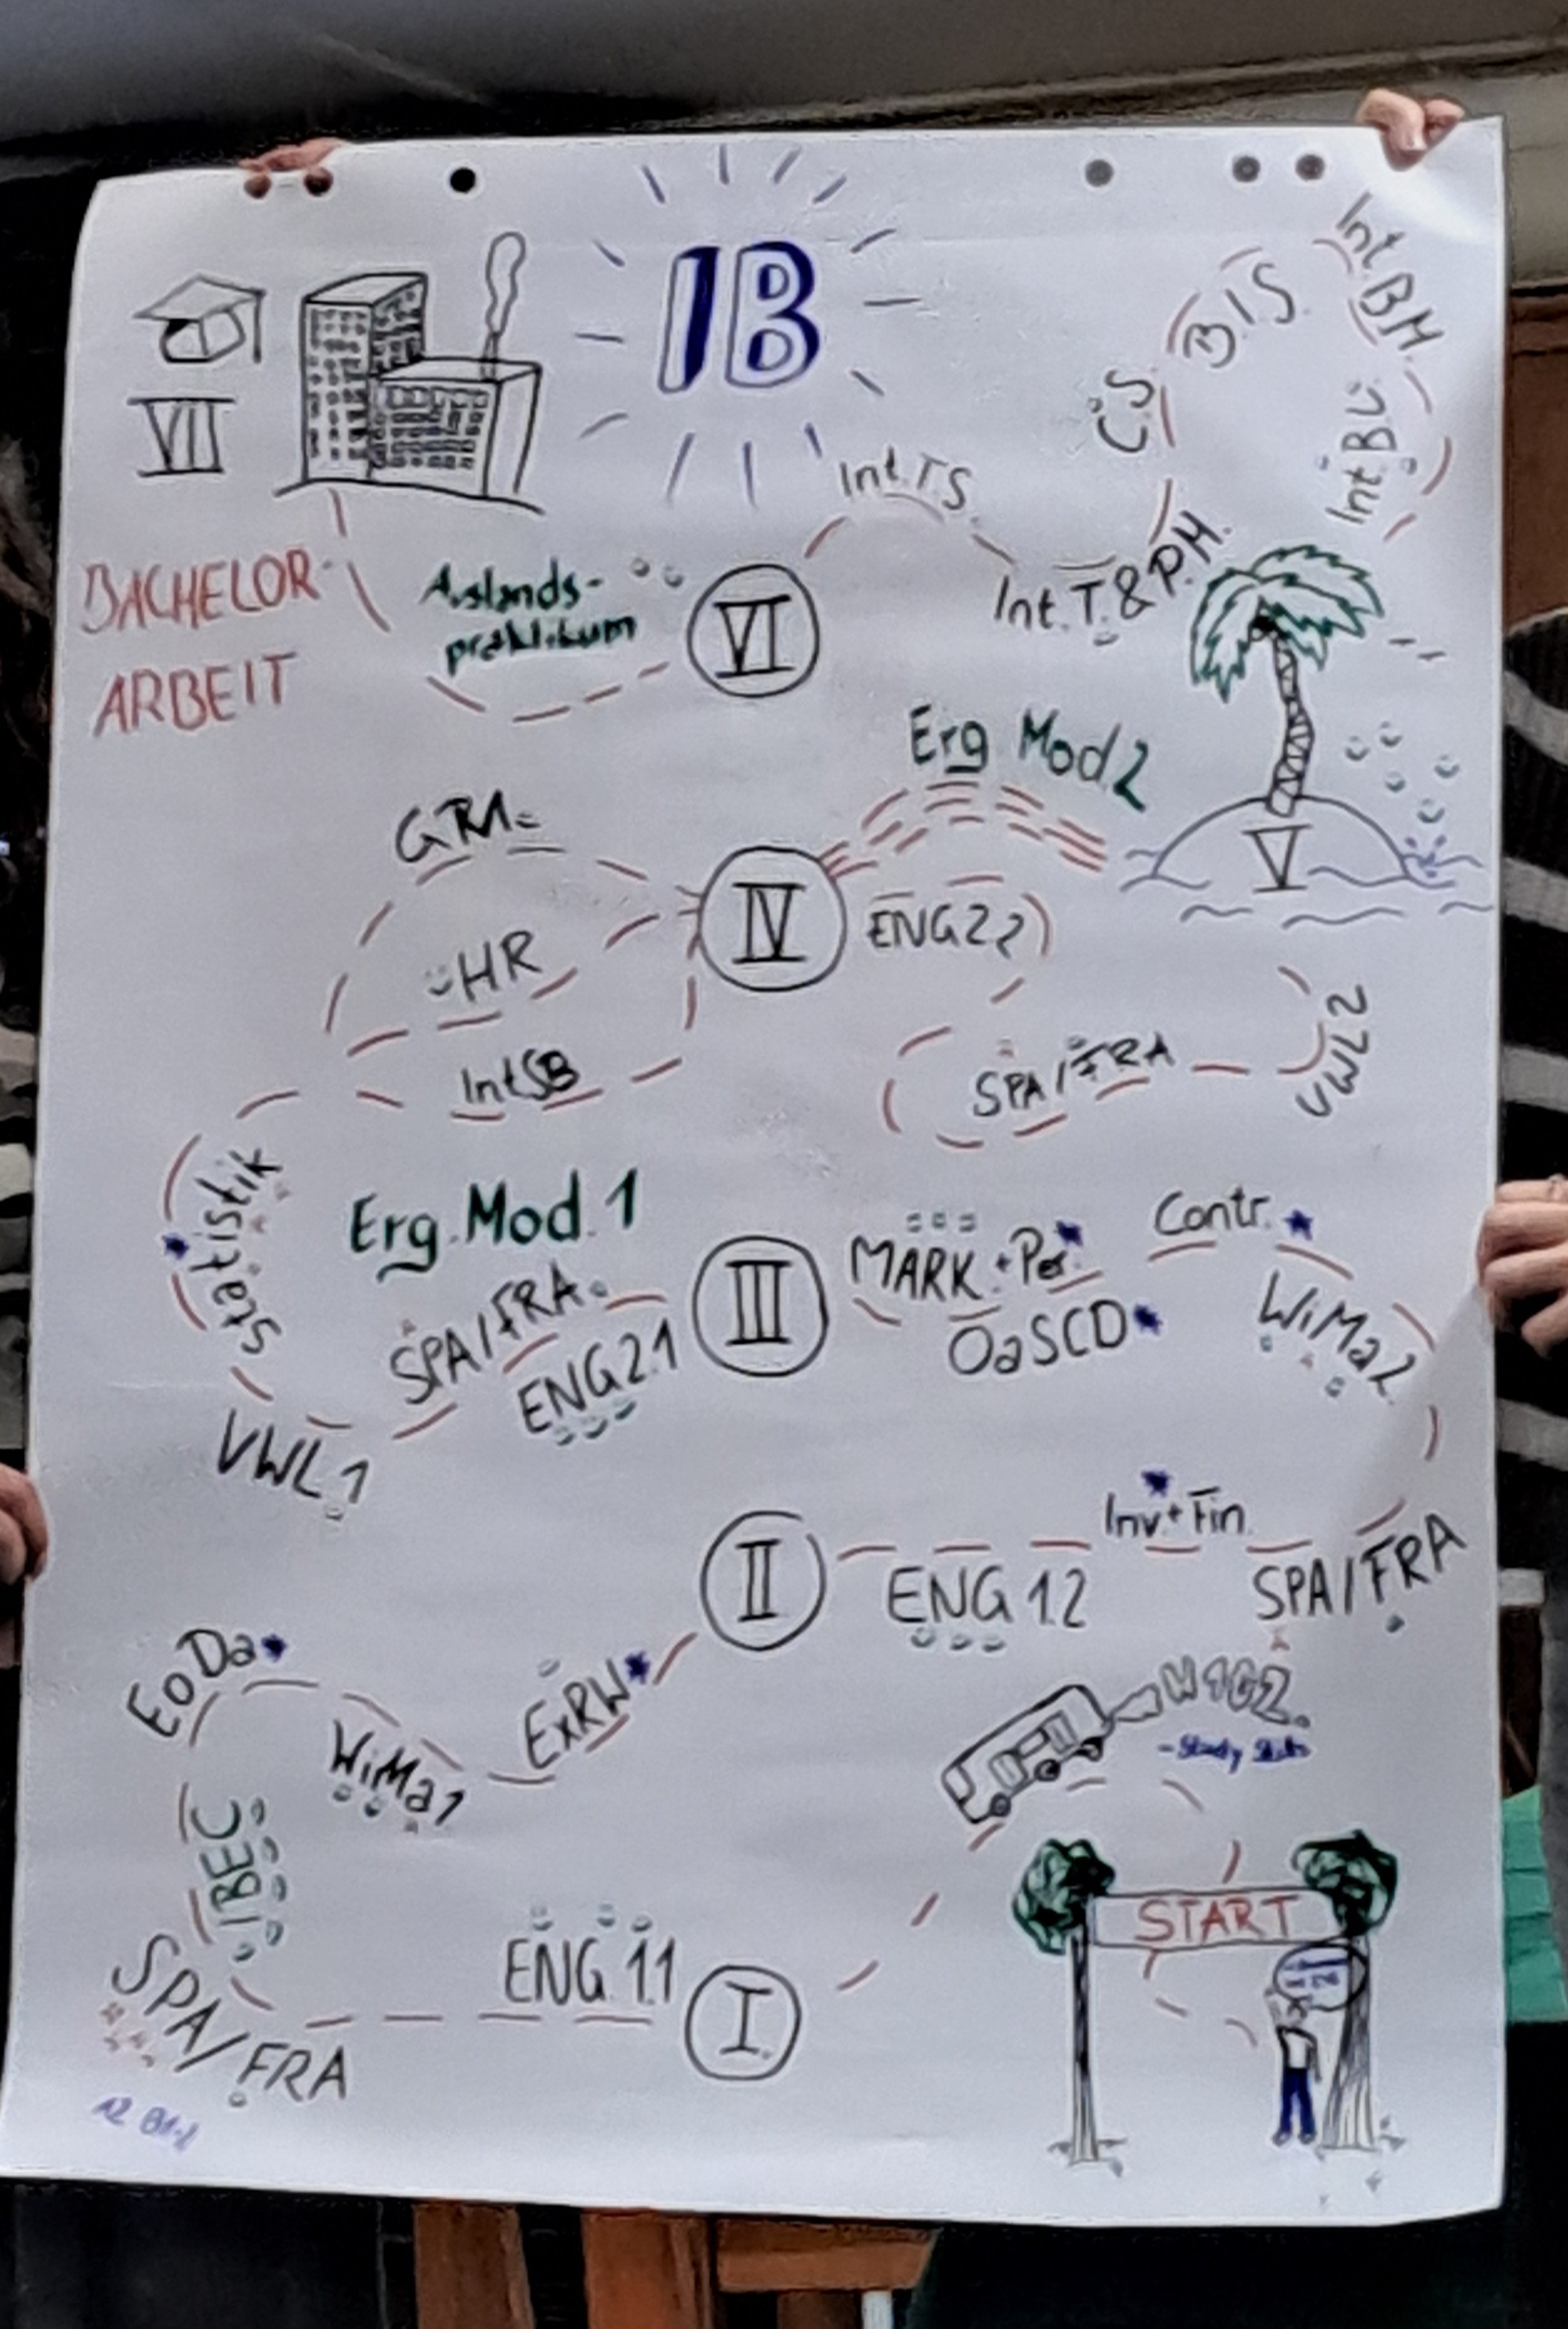 IB
VII
BACHELOR-
ARBEIT
Auslands-
praktikum
VI
Int.TS
Int.T.&P.M.
C.S
B.I.S.
Int BM
Int.BL
Erg Mod 2
V
IV
ENG 2.2
SPA/FRA
VWL 2
HR
IntSB
Statistik
VWL 1
Erg. Mod. 1
SPA/FRA
ENG 2.1
III
MARK.+Per.
OaSCD
Contr.
WiMa2
SPA/FRA
Inv+Fin.
ENG 1.2
II
ExRW
WiMa1
EoDa
IBEC
SPA/FRA
ENG 1.1
I
START